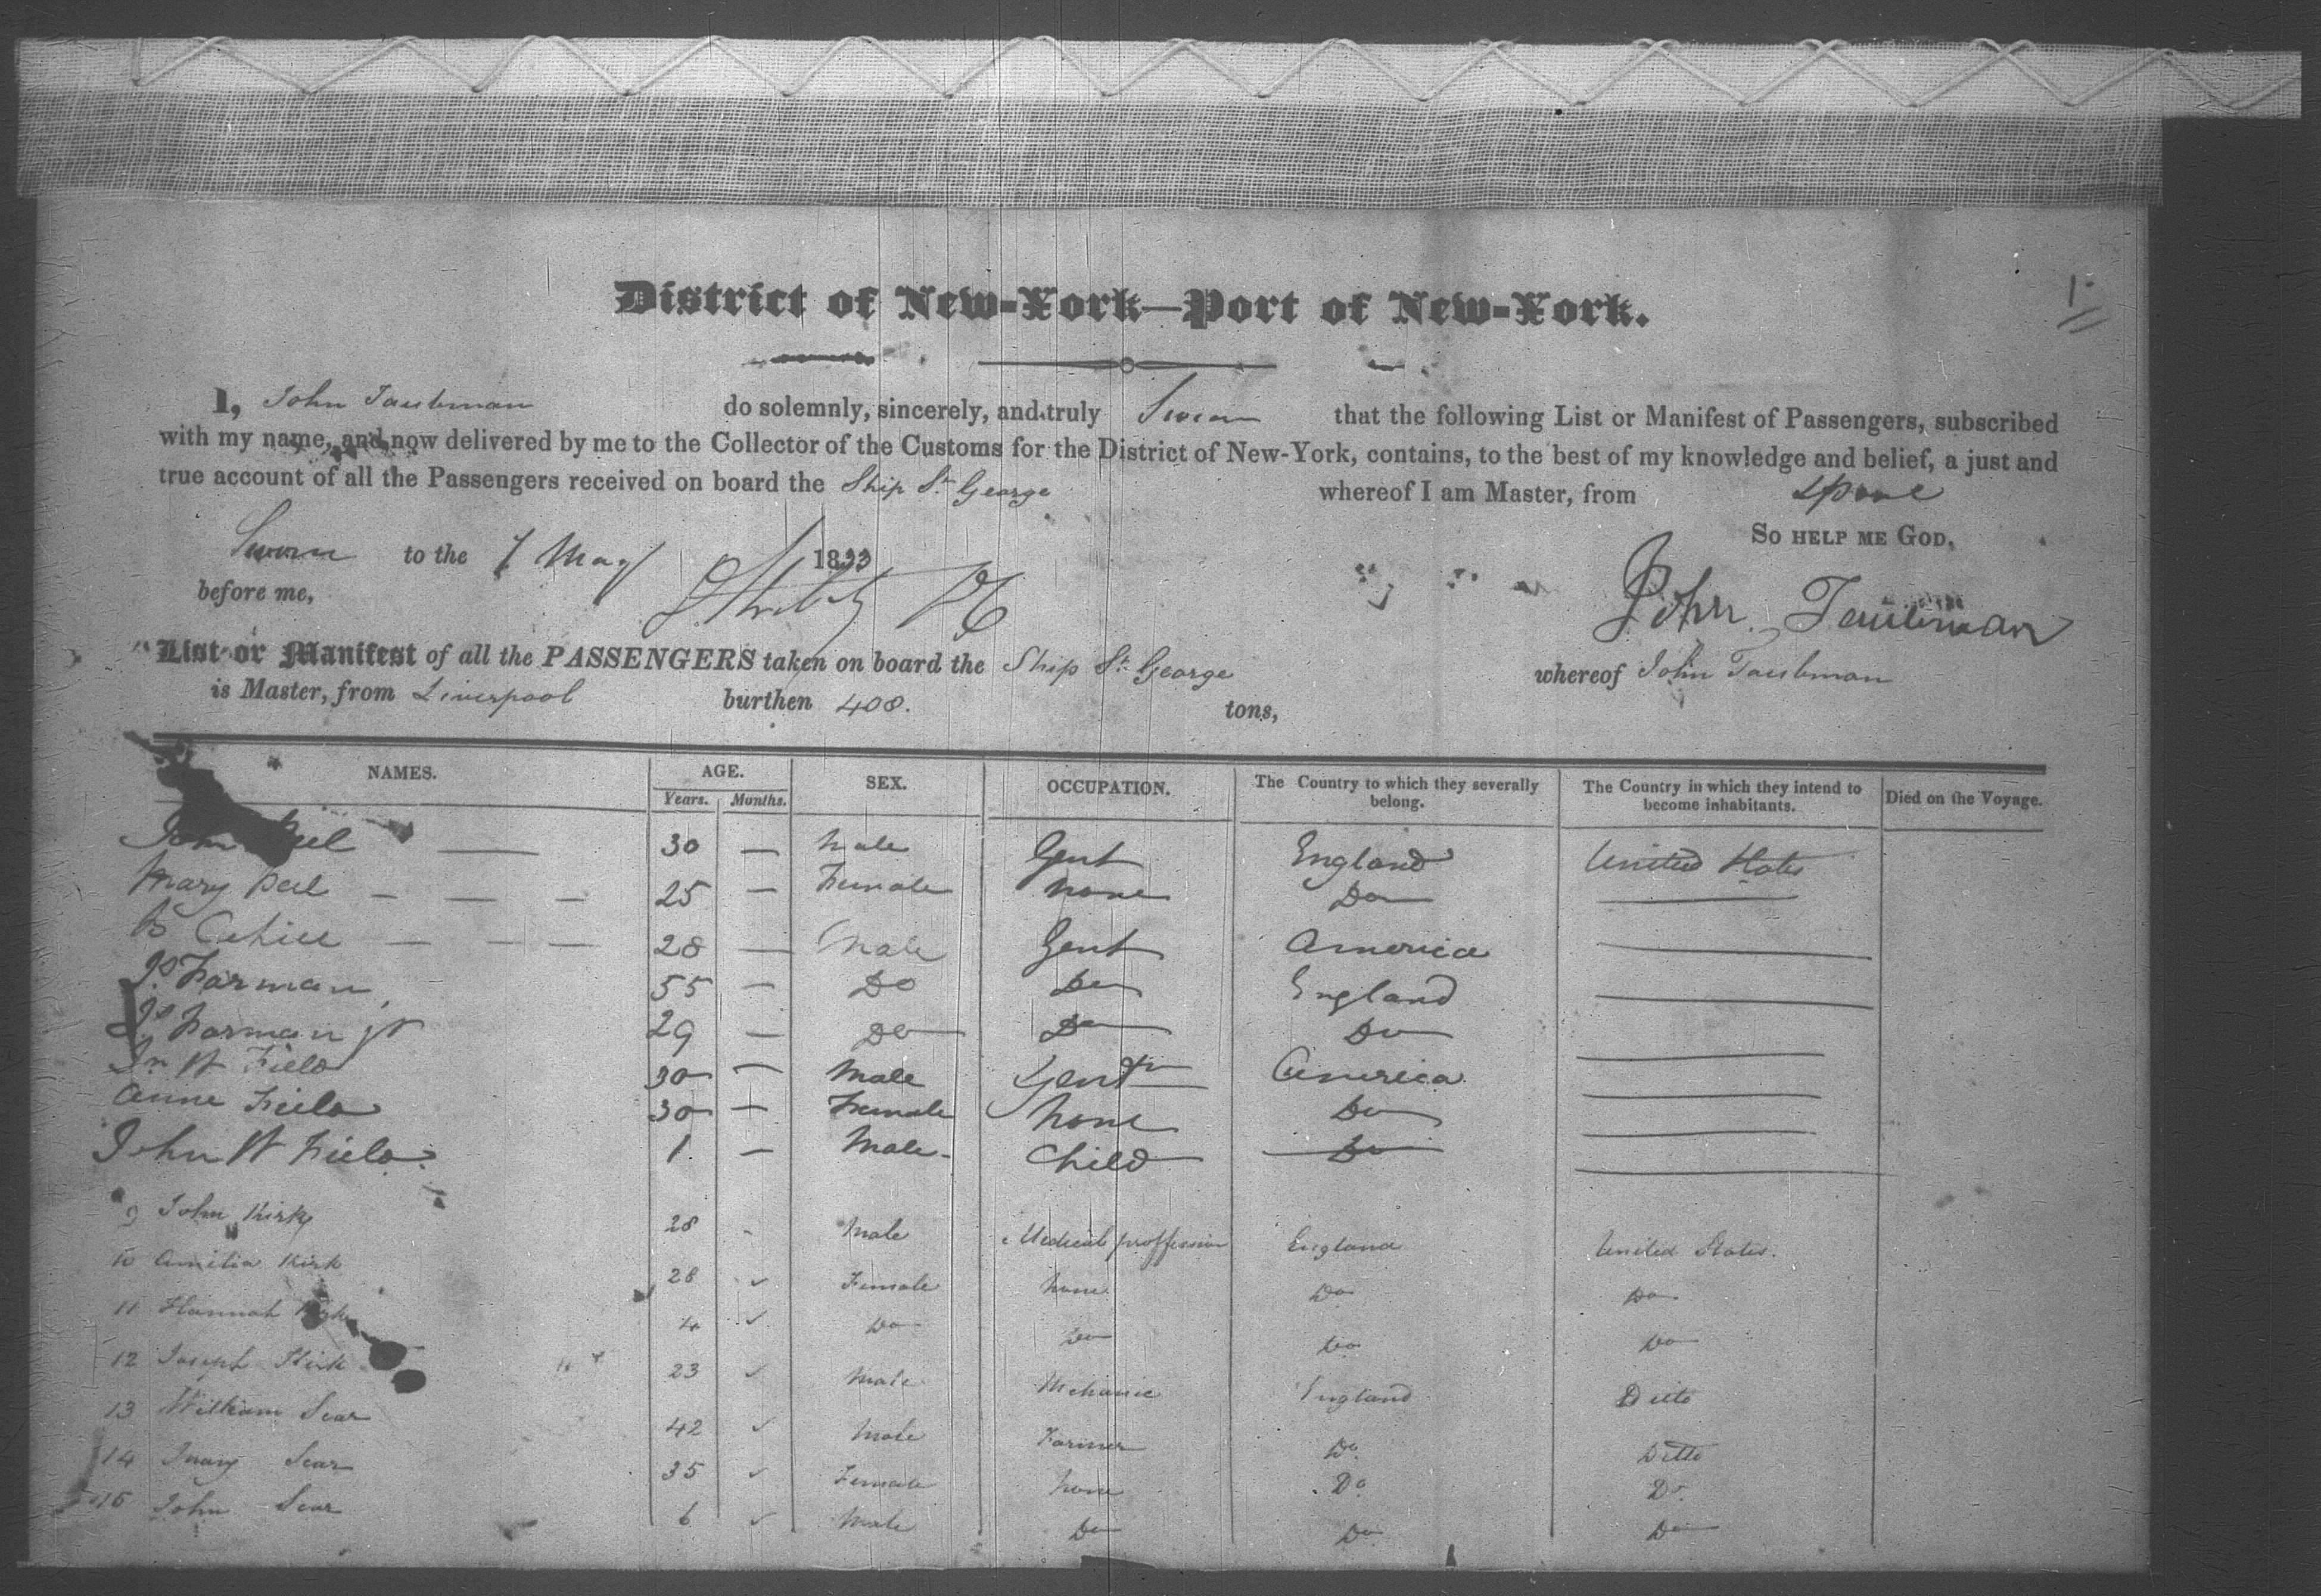 District of New-York—Port of New-York.
1
I, John Taubman do solemnly, sincerely, and truly Swear that the following List or Manifest of Passengers, subscribed
with my name, and now delivered by me to the Collector of the Customs for the District of New-York, contains, to the best of my knowledge and belief, a just and
true account of all the Passengers received on board the Ship St. George whereof I am Master, from Lpool
So help me God,
Sworn to the 7 May 1833
before me,
John Taubman
List or Manifest of all the PASSENGERS taken on board the Ship St. George whereof John Taubman
is Master, from Liverpool burthen 408. tons,
NAMES. AGE. SEX. OCCUPATION. The Country to which they severally belong. The Country in which they intend to become inhabitants. Died on the Voyage.
Years. Months.
John Peel — 30 — Male Gent England United States
Mary Peel — — — 25 — Female None Do
Cahill — — — 28 — Male Gent America
Jo. Farman, 55 — Do Do England
Jo. Farman jr 29 — Do Do Do
Jn. W Field 30 — Male Gentn America
Anne Field 30 — Female None Do
John W Field. 1 — Male Child Do
9 John Kirk 28 - Male Medical proffession England United States.
10 Amilia Kirk 28 Female None Do Do
11 Hannah Kirk 4 Do Do Do Do
12 Joseph Kirk 23 Male Mechanic England Ditto
13 William Sear 42 Male Farmer Do. Ditto
14 Mary Sear 35 Female None Do Do.
15 John Sear 6 Male Do Do Do